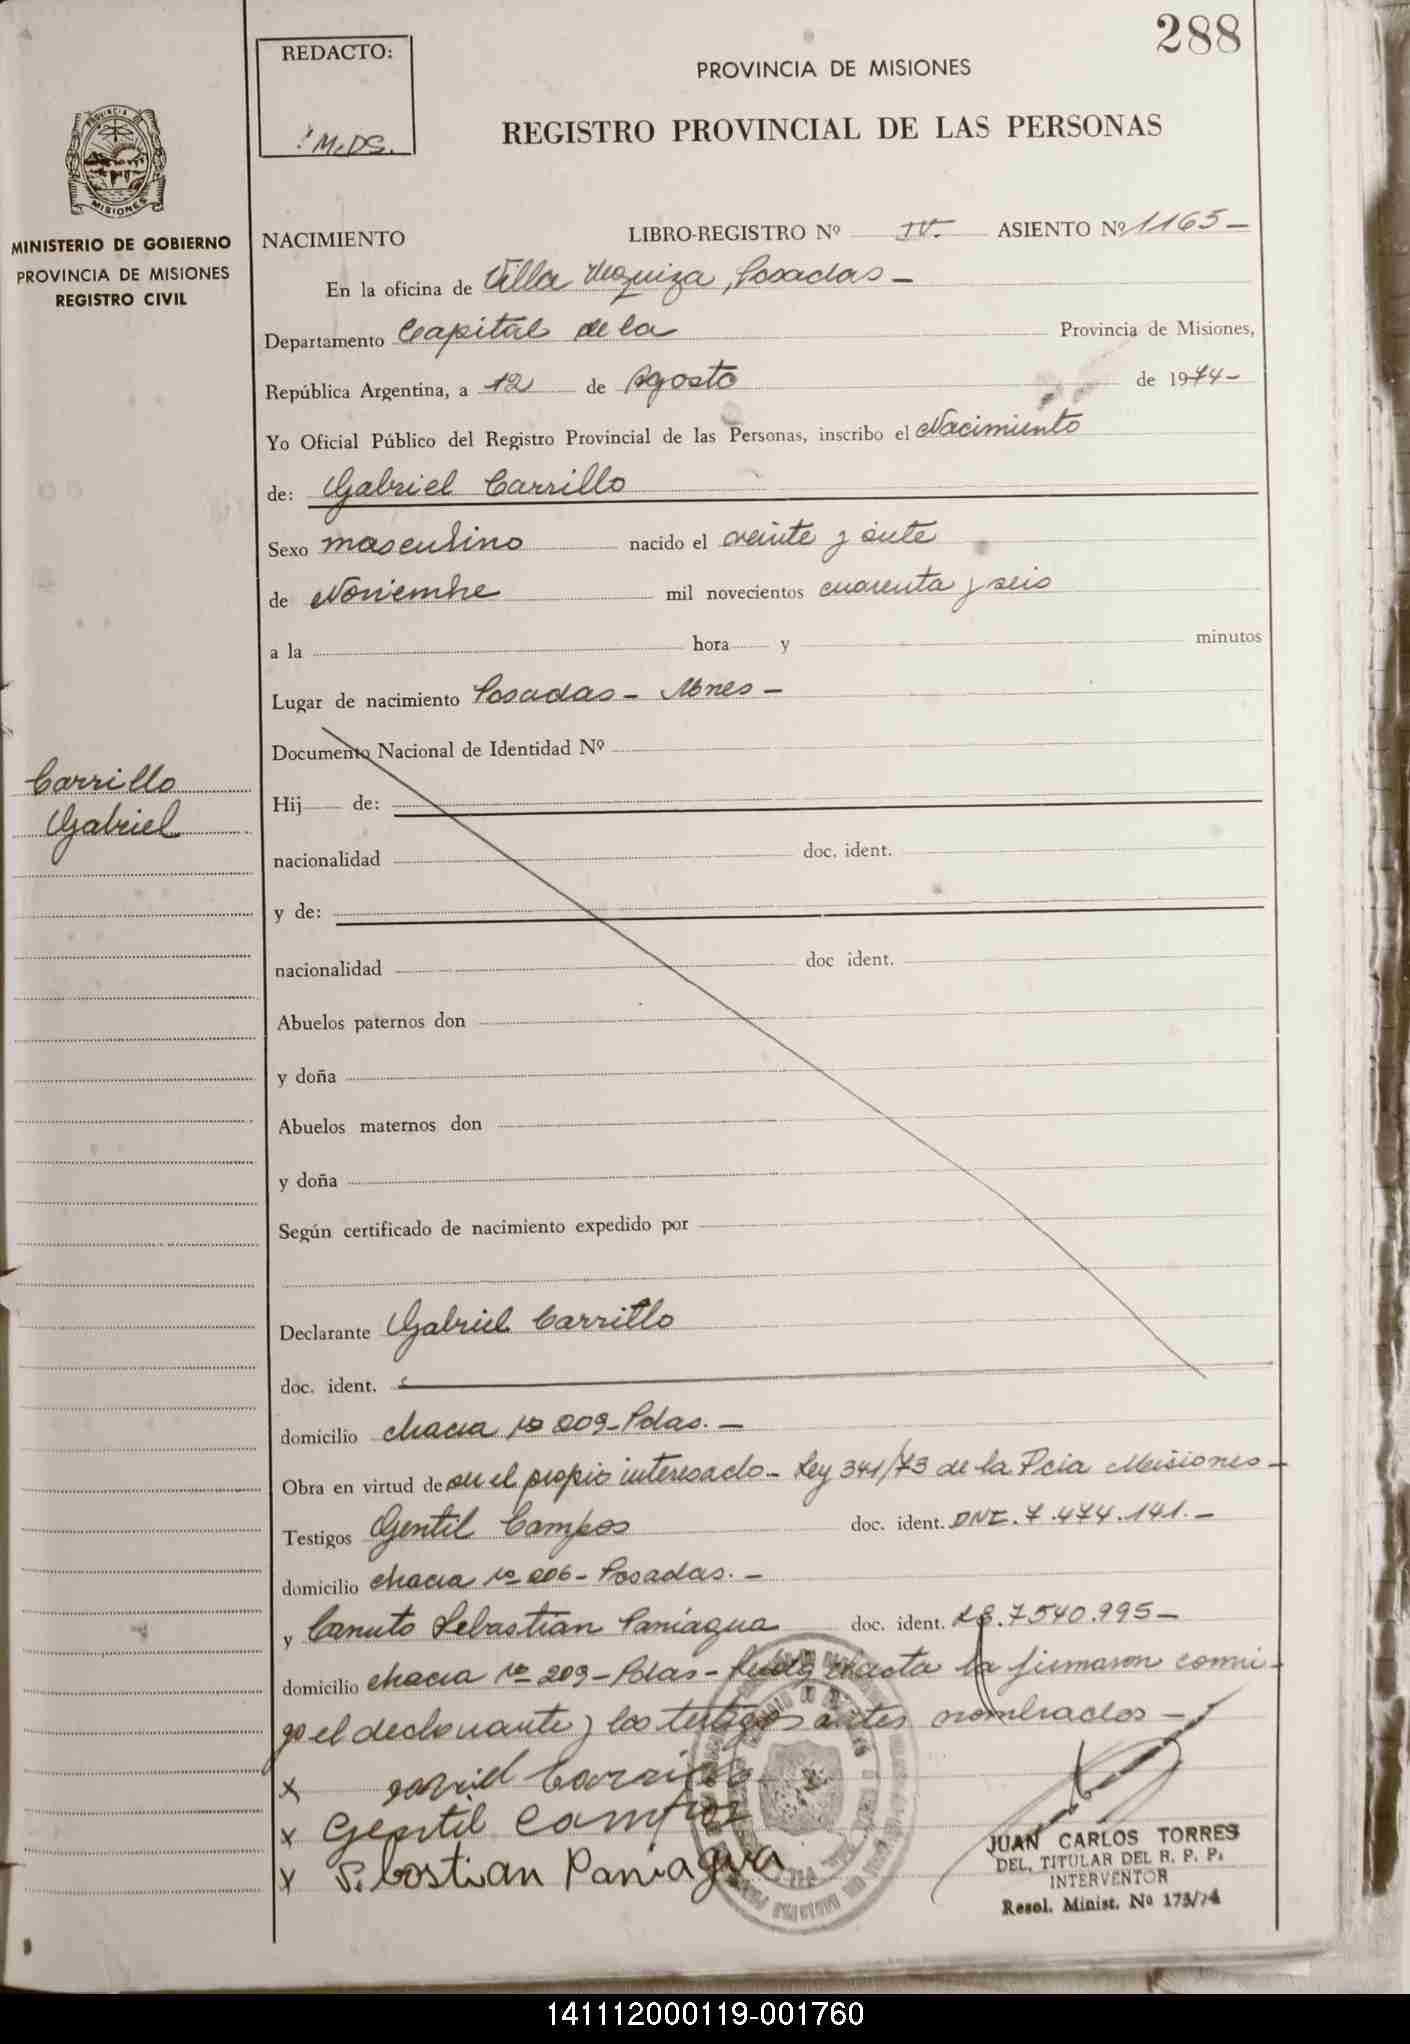 288
REDACTO:
M.DS.
PROVINCIA DE MISIONES
REGISTRO PROVINCIAL DE LAS PERSONAS
PROVINCIA DE
MISIONES
MINISTERIO DE GOBIERNO
PROVINCIA DE MISIONES
REGISTRO CIVIL
NACIMIENTO LIBRO-REGISTRO Nº IV. ASIENTO Nº 1165-
En la oficina de Villa Urquiza, Posadas -
Departamento Capital de la Provincia de Misiones,
República Argentina, a 12 de Agosto de 1974-
Yo Oficial Público del Registro Provincial de las Personas, inscribo el Nacimiento
de: Gabriel Carrillo
Sexo masculino nacido el veinte y siete
de Noviembre mil novecientos cuarenta y seis
a la hora y minutos
Lugar de nacimiento Posadas - Mnes -
Documento Nacional de Identidad Nº
Carrillo
Gabriel
Hij de:
nacionalidad doc. ident.
y de:
nacionalidad doc ident.
Abuelos paternos don
y doña
Abuelos maternos don
y doña
Según certificado de nacimiento expedido por
Declarante Gabriel Carrillo
doc. ident.
domicilio chacra nº 209-Pdas. -
Obra en virtud de ser el propio interesado - Ley 341/73 de la Pcia Misiones -
Testigos Gentil Campos doc. ident. DNI. 7.474.141. -
domicilio chacra nº 206 - Posadas. -
y Canuto Sebastian Paniagua doc. ident. LE. 7540.995 -
domicilio chacra nº 209 - Pdas - Leida el acta la firmaron conmi-
go el declarante y los testigos antes nombrados -
x Gabriel Carrillo
x Gentil Campos
x S. bastian Paniagua
JUAN CARLOS TORRES
DEL. TITULAR DEL R. P. P.
INTERVENTOR
Resol. Minist. Nº 173/74
141112000119-001760